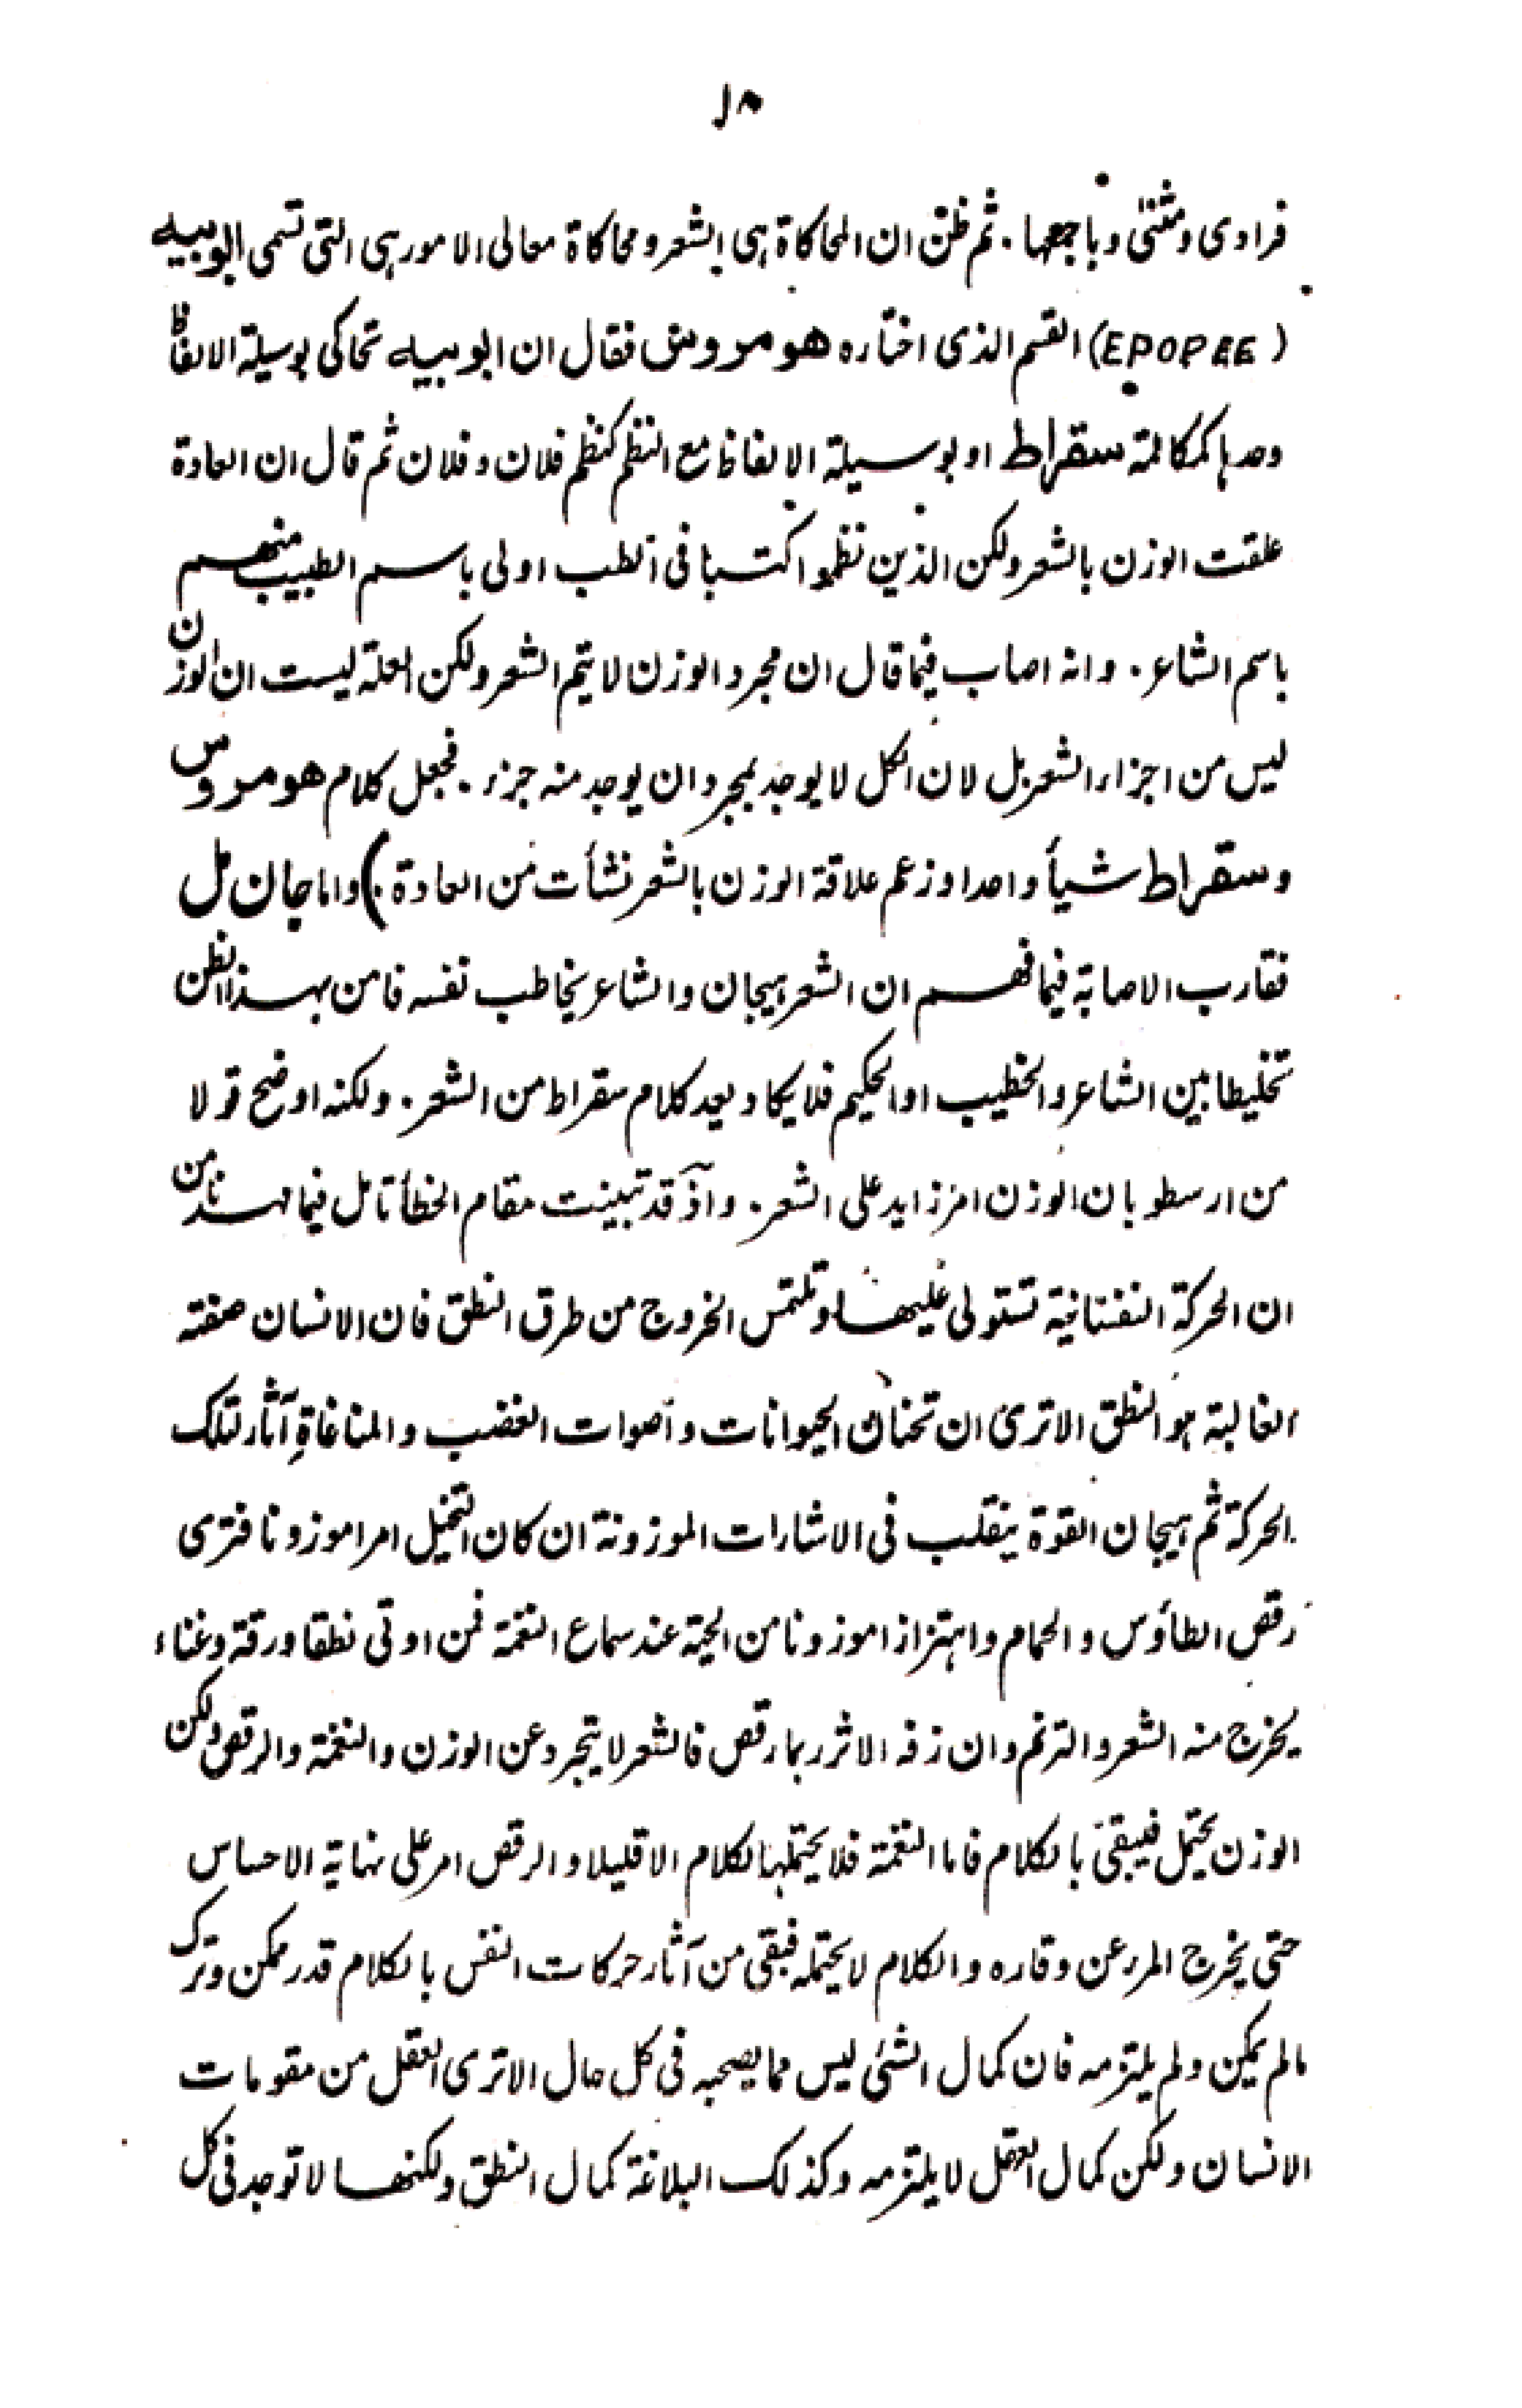 ١٨
فرادى ومثنىٰ وباجمعها. ثم ظن ان المحاكاة هى الشعر ومحاكاة معالى الامور هى التى تسمى ابوبيه
(EPOPEE) القسم الذى اختاره هومروس فقال ان ابوبيه تحاكى بوسيلة الالفاظ
وحدها كمكالمة سقراط او بوسيلة الالفاظ مع النظم كنظم فلان وفلان ثم قال ان العادة
علقت الوزن بالشعر ولكن الذين نظموا كتبا فى الطب اولى باسم الطبيب منهم
باسم الشاعر. وانه اصاب فيما قال ان مجرد الوزن لا يتم الشعر ولكن العلة ليست ان الوزن
ليس من اجزاء الشعر بل لان الكل لا يوجد بمجرد ان يوجد منه جزء. فجعل كلام هومروس
وسقراط شيأ واحدا وزعم علاقة الوزن بالشعر نشأت من العادة.) واما جان مل
فقارب الاصابة فيما فهم ان الشعر هيجان والشاعر يخاطب نفسه فامن بهذا الظن
تخليطا بين الشاعر والخطيب او الحكيم فلا يكاد يعد كلام سقراط من الشعر. ولكنه اوضح قولا
من ارسطو بان الوزن امر زايد على الشعر. واذ قد تبينت مقام الخطأ تامل فيما مهدنا من
ان الحركة النفسانية تستولى عليها وتلتمس الخروج من طرق النطق فان الانسان صفته
الغالبة هو النطق الا ترى ان تحنان الحيوانات واصوات الغضب والمناغاة آثار لتلك
الحركة ثم هيجان القوة ينقلب فى الاشارات الموزونة ان كان التخيل امرا موزونا فترى
رقص الطاؤس والحمام واهتزازا موزونا من الحية عند سماع النغمة فمن اوتى نطقا ورقة وغناء
يخرج منه الشعر والترنم وان زفه الاثر ربما رقص فالشعر لا يتجرد عن الوزن والنغمة والرقص ولكن
الوزن يحتمل فيبقى بالكلام فاما النغمة فلا يحتملها الكلام الا قليلا والرقص امر على نهاية الاحساس
حتى يخرج المرء عن وقاره والكلام لا يحتمله فبقى من آثار حركات النفس بالكلام قدر ممكن وترك
مالم يمكن ولم يلتزمه فان كمال الشئ ليس مما يصحبه فى كل حال الا ترى العقل من مقومات
الانسان ولكن كمال العقل لا يلتزمه وكذلك البلاغة كمال النطق ولكنها لا توجد فى كل